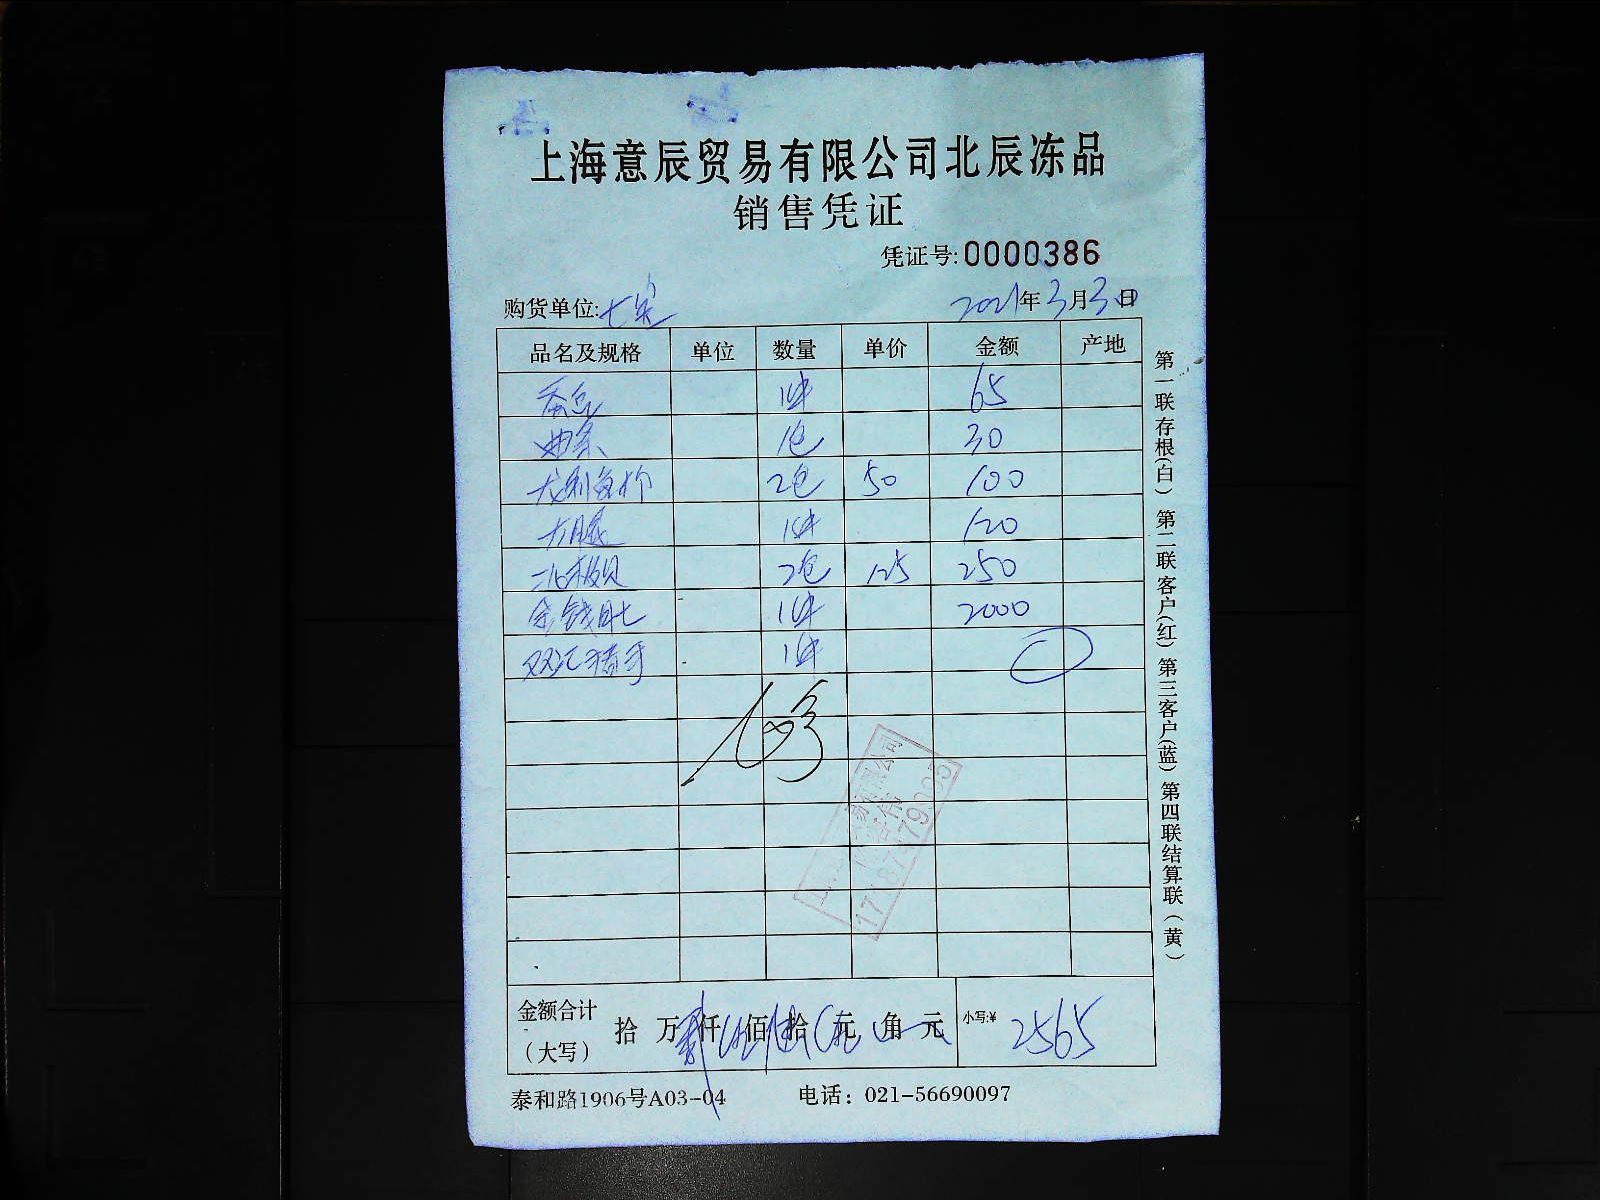 上海意辰贸易有限公司北辰冻品
销售凭证
凭证号:0000386
购货单位:七宝 2021年3月3日
品名及规格 单位 数量 单价 金额 产地
蚕豆 1件 65
1包 30
龙利鱼柳 2包 50 100
1件 120
北极贝 2包 125 250
金钱肚 1件 2000
双汇猪手 1件
金额合计(大写) 拾 万 贰仟 伍佰 陆拾 伍元 角 元 小写:¥ 2565
泰和路1906号A03-04 电话：021-56690097
第一联存根(白) 第二联客户(红) 第三客户(蓝) 第四联结算联(黄)